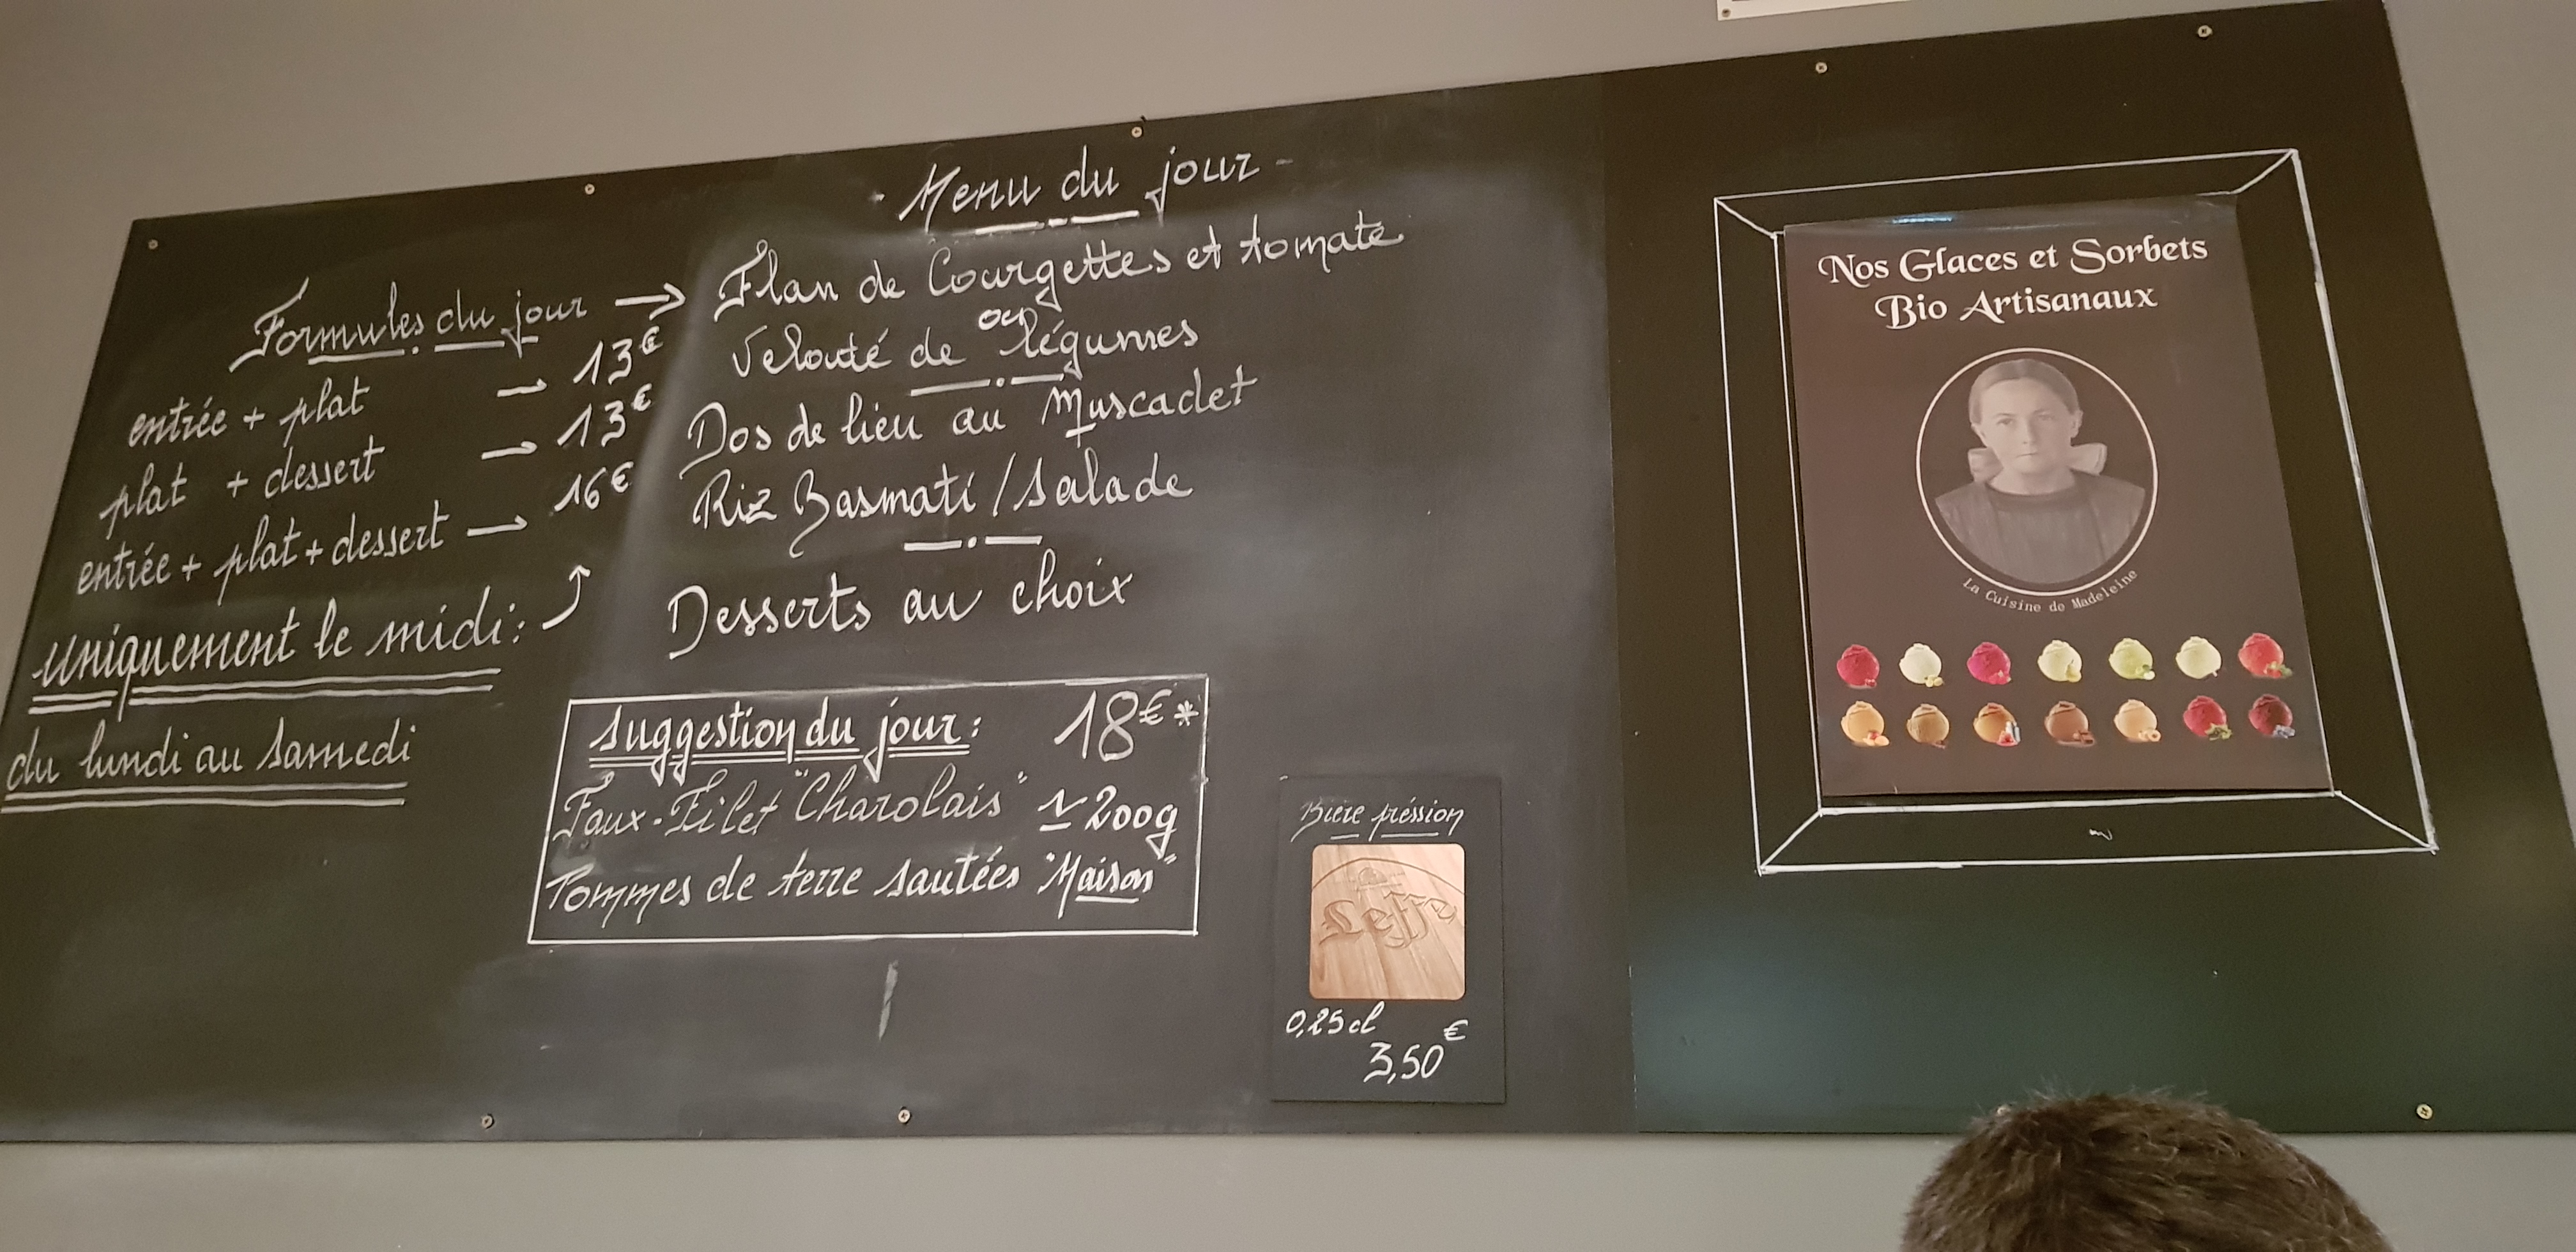 - Menu du jour -
Formules du jour →
entrée + plat — 13€
plat + dessert — 13€
entrée + plat + dessert — 16€
uniquement le midi:
du lundi au samedi
Flan de Courgettes et tomate
ou
Velouté de légumes
Dos de lieu au Muscadet
Riz Basmati / salade
Desserts au choix
Suggestion du jour: 18€*
Faux-Filet "Charolais" ± 200g
Pommes de terre sautées "Maison"
Bière préssion
Leffe
0,25 cl
3,50 €
Nos Glaces et Sorbets
Bio Artisanaux
La Cuisine de Madeleine